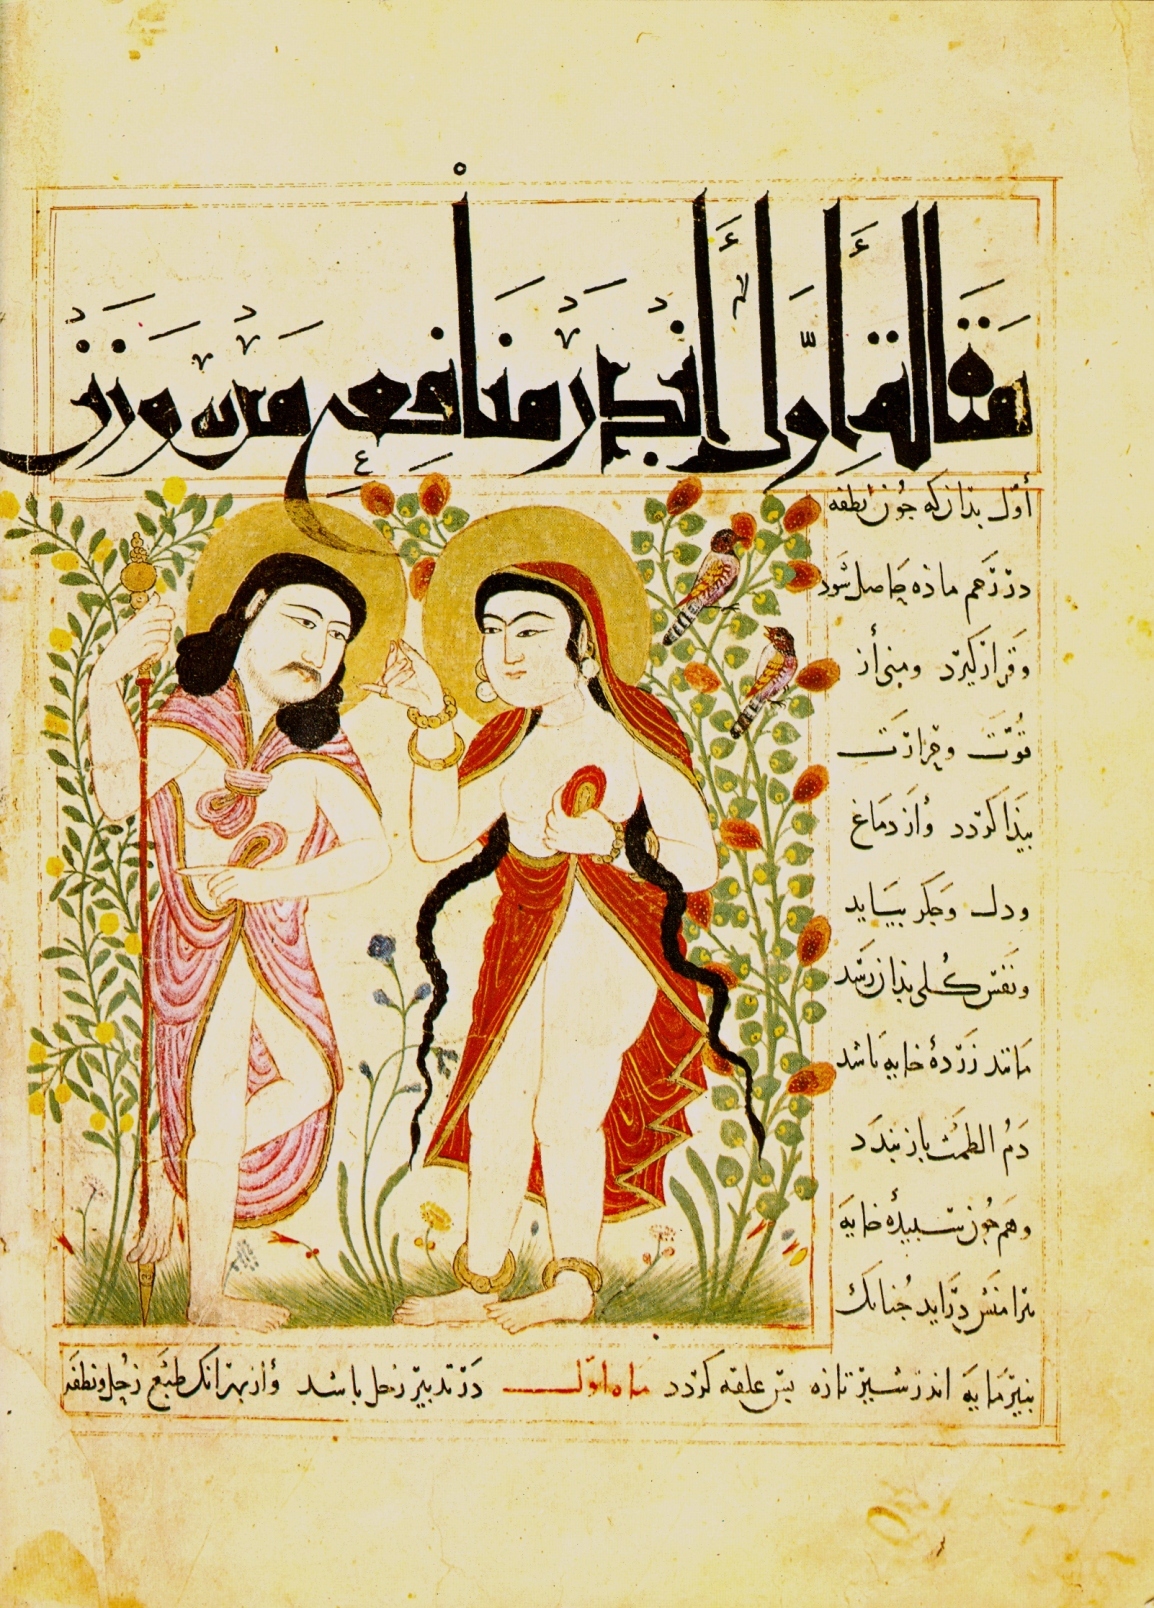 مَقَالَة أَوَّل أندر منافع مرد و زن
أوّل بذانکه چون نطفه
در رَحم ماده حاصل شوذ
وقرار کیرد ومنی أز
قُوّت وحرارت
بیذا کردد وأز دماغ
ودل وجکر بیاید
ونفس کلی بذان رسد
مانند زردهٔ خایه باشد
دمُ الطمث باز بندد
وهم چون سبیدهٔ خایه
برامنش درآید جنانک
بنیرمایه اندر شیر تازه بس علقه کردد ماه اول در تدبیر زحل باشد وأز بهر انک طبع زحل ونطفه